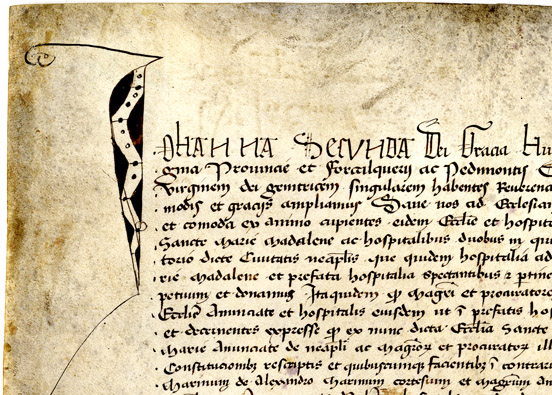 Iohanna Secunda Dei Gracia Hu
gina Provincie et Forcalquerij ac Pedimontis C
Virginem dei genitricem singularem habentes Reverenc
modis et gracijs ampliamus Sane nos ad Ecclesiam
et comoda ex animo cupientes eidem Ecclie et hospita
Sancte marie madalene ac hospitalibus duobus in qu
torio dicte Civitatis neaplis que quidem hospitalia ad
rie madalene et prefata hospitalia spectantibus et p
petuum et donamus Itaquidem q magri et procuratore
Ecclie Anunciate et hospitalis eiusdem ut i prefatis ho
et decernentes expresse q ex nunc dicta Ecclia Sancte
marie Anunciate de neapli ac magror et procurator ill
Constitucionibz rescriptis et quibuscumqz facientibz i contrari
marinum de Alexandro marinum cortesium et magrum an